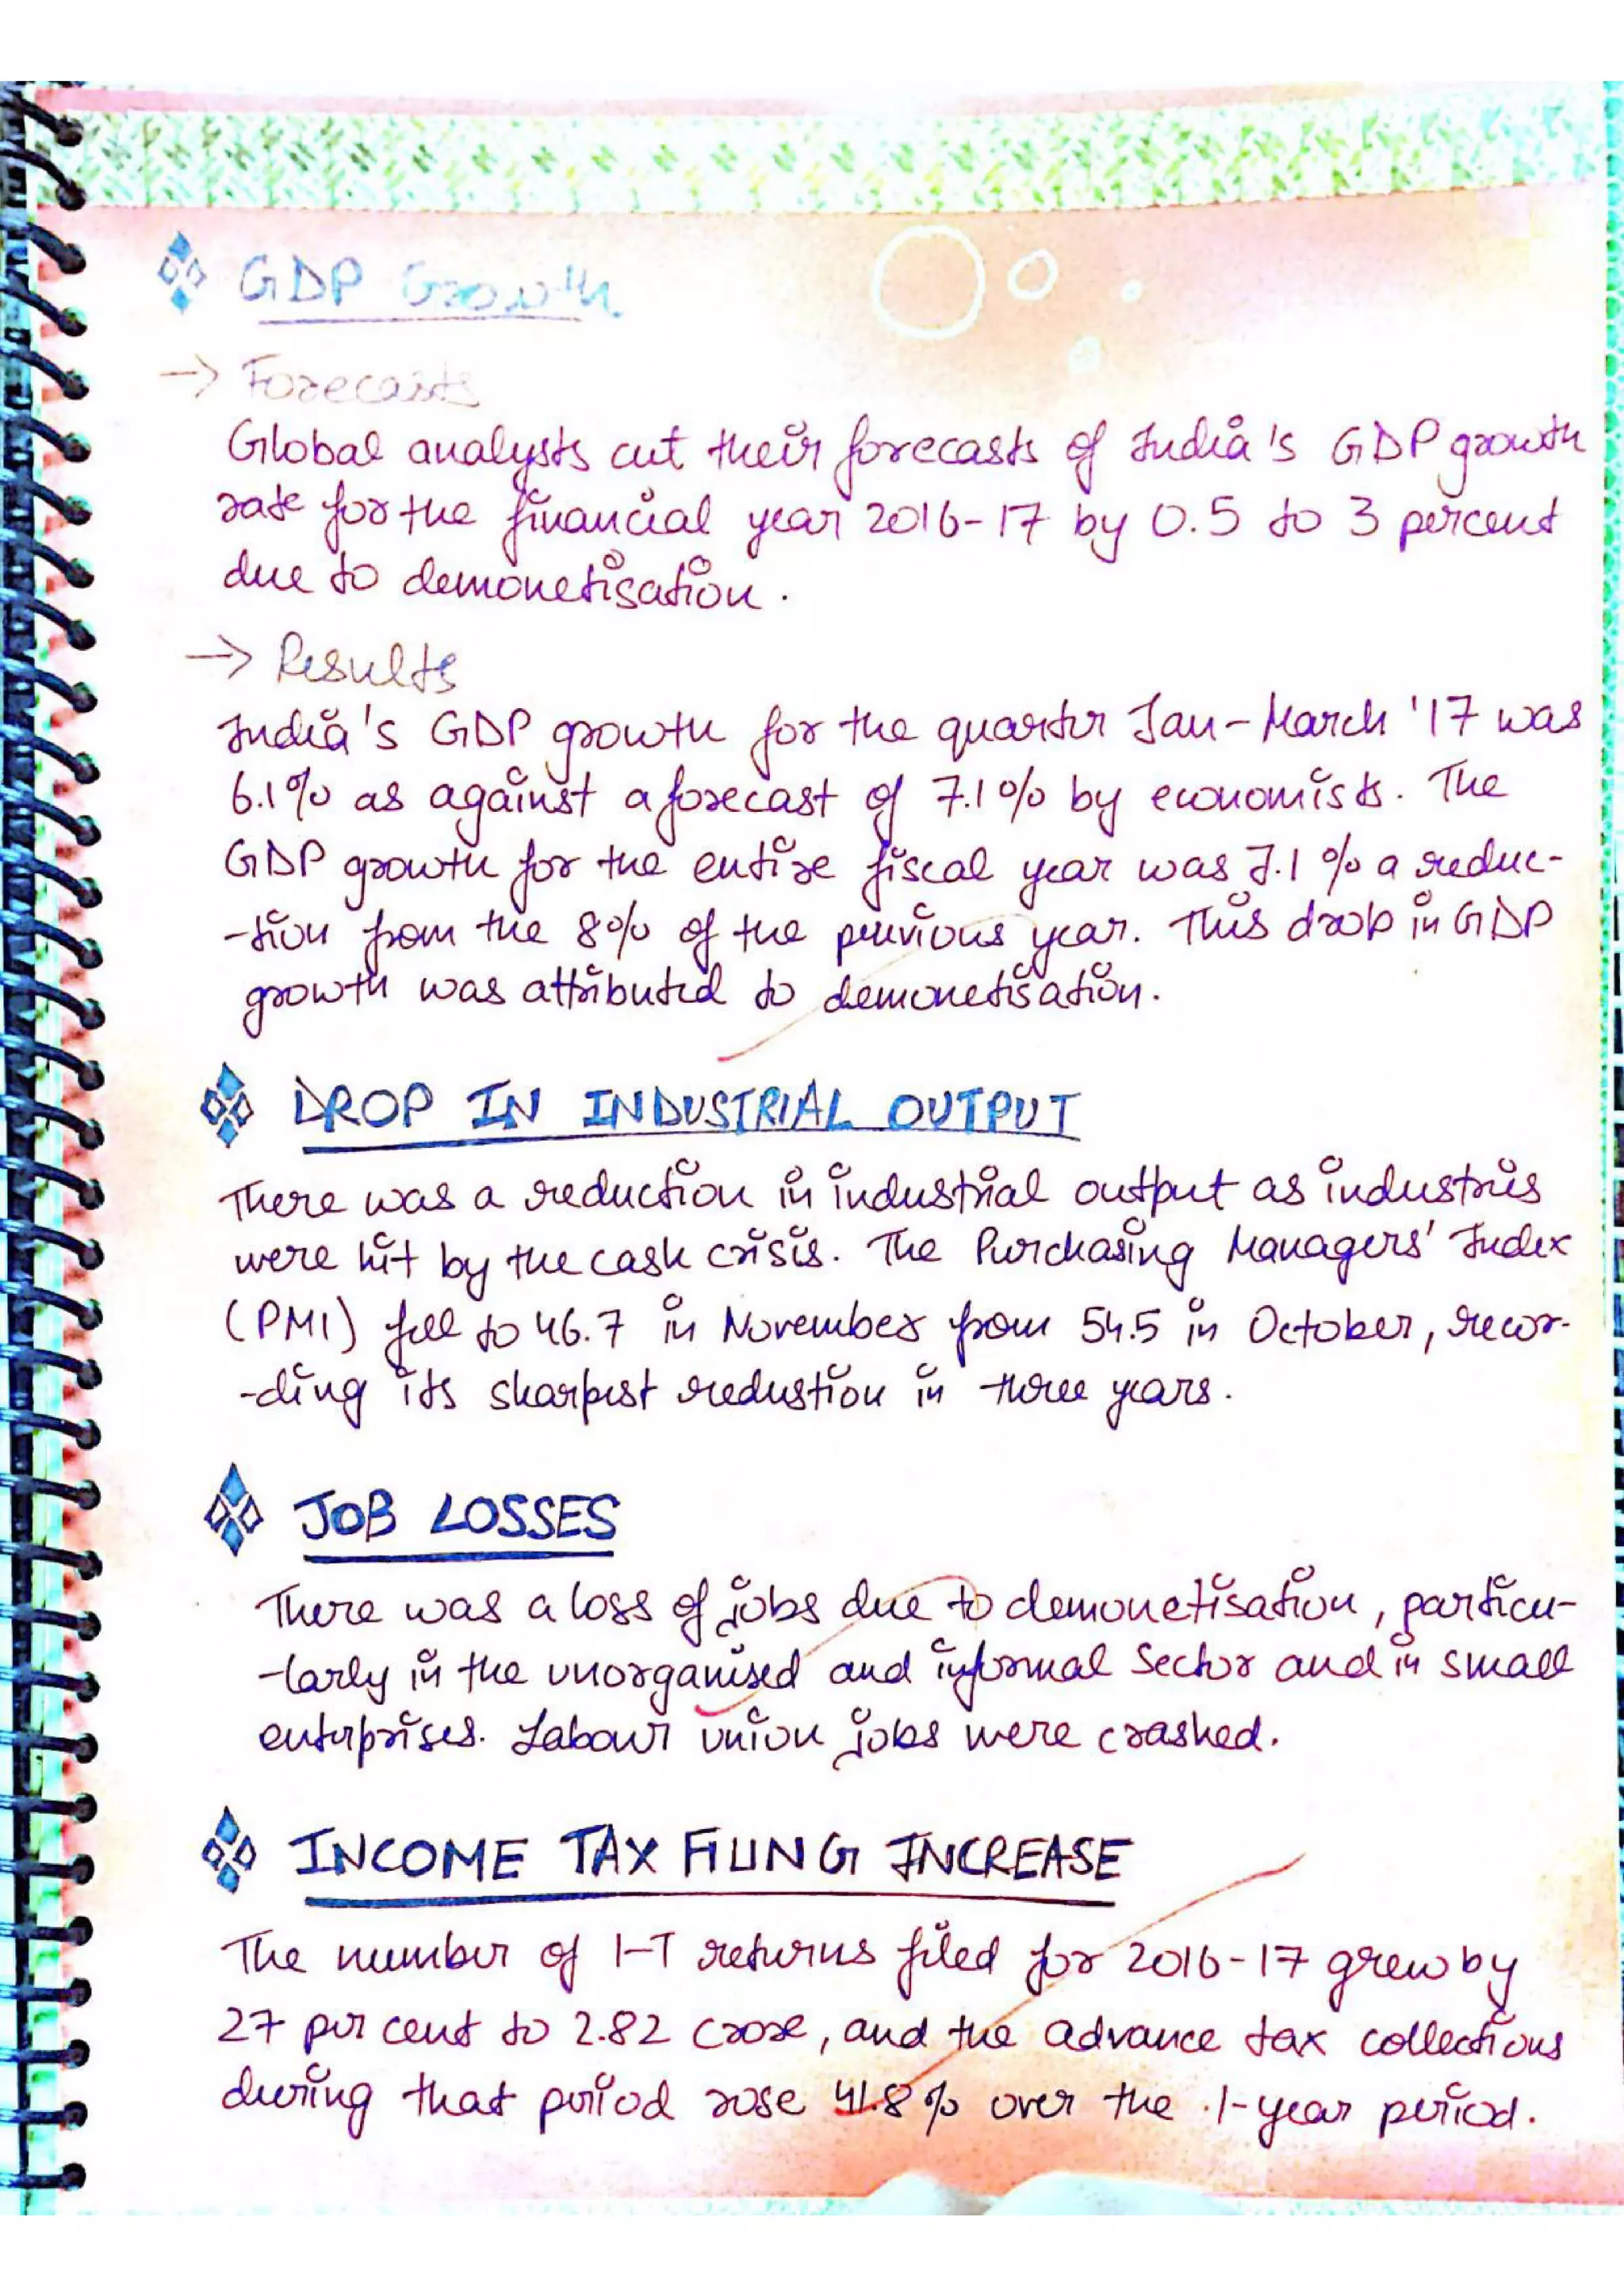 GDP Growth
→ Forecasts
Global analysts cut their forecasts of India's GDP growth
rate for the financial year 2016-17 by 0.5 to 3 percent
due to demonetisation.
→ Results
India's GDP growth for the quarter Jan-March '17 was
6.1% as against a forecast of 7.1% by economists. The
GDP growth for the entire fiscal year was 7.1% a reduc-
-tion from the 8% of the previous year. This drop in GDP
growth was attributed to demonetisation.
DROP IN INDUSTRIAL OUTPUT
There was a reduction in industrial output as industries
were hit by the cash crisis. The Purchasing Managers' Index
(PMI) fell to 46.7 in November from 54.5 in October, recor-
-ding its sharpest redustion in three years.
JOB LOSSES
There was a loss of jobs due to demonetisation, particu-
-larly in the unorganised and informal Sector and in small
enterprises. Labour union jobs were crashed.
INCOME TAX FILING INCREASE
The number of I-T returns filed for 2016-17 grew by
27 per cent to 2.82 crore, and the advance tax collections
during that period rose 41.8% over the 1-year period.